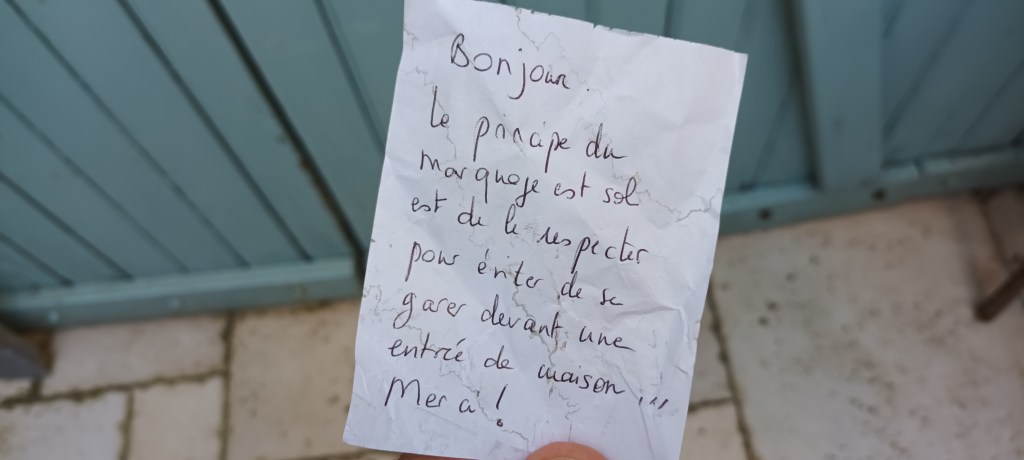 Bonjour.
Le principe du
marquage est sol
est de le respecter
pour éviter de se
garer devant une
entrée de maison ,,,
Merci !